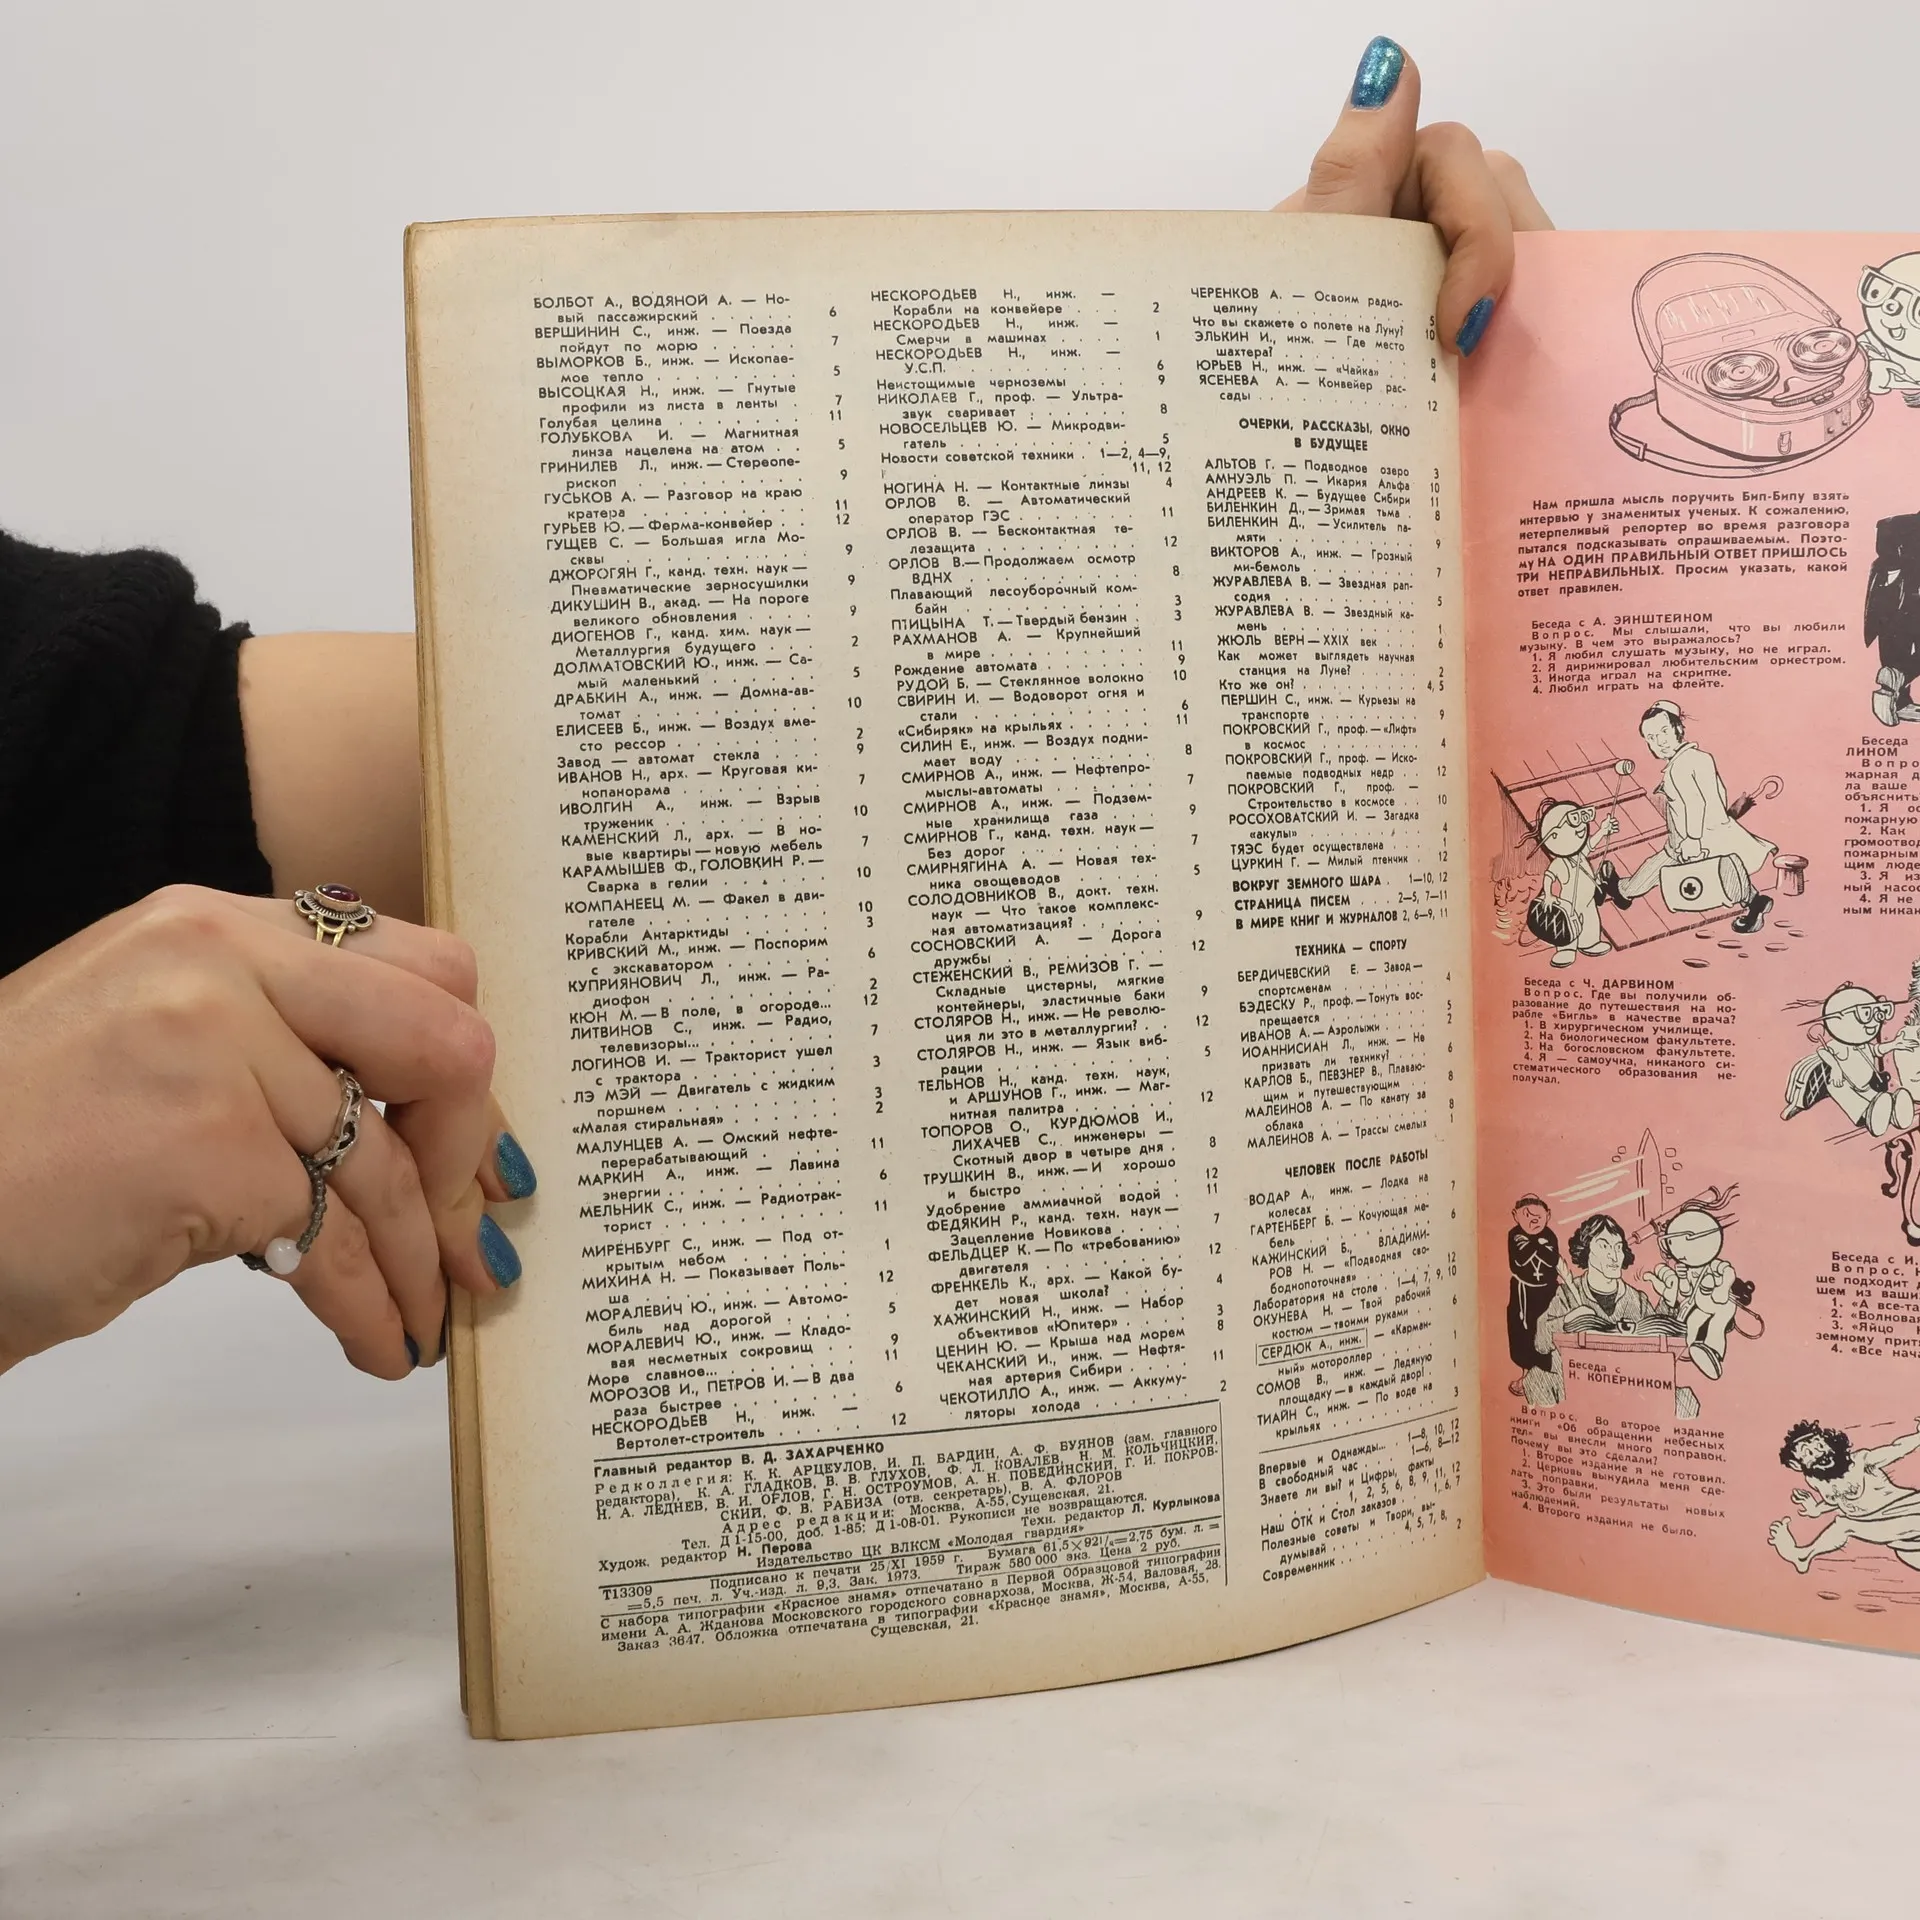 БОЛБОТ А., ВОДЯНОЙ А. — Но-
вый пассажирский . . . . . 6
ВЕРШИНИН С., инж. — Поезда
пойдут по морю . . . . . 7
ВЫМОРКОВ Б., инж. — Ископае-
мое тепло . . . . . 5
ВЫСОЦКАЯ Н., инж. — Гнутые
профили из листа в ленты . 7
Голубая целина . . . . . 11
ГОЛУБКОВА И. — Магнитная
линза нацелена на атом . . 5
ГРИНИЛЕВ Л., инж. — Стереопе-
рископ . . . . . 9
ГУСЬКОВ А. — Разговор на краю
кратера . . . . . 11
ГУРЬЕВ Ю. — Ферма-конвейер . . 12
ГУЩЕВ С. — Большая игла Мо-
сквы . . . . . 9
ДЖОРОГЯН Г., канд. техн. наук —
Пневматические зерносушилки 9
ДИКУШИН В., акад. — На пороге
великого обновления . . . . 9
ДИОГЕНОВ Г., канд. хим. наук —
Металлургия будущего . . . 2
ДОЛМАТОВСКИЙ Ю., инж. — Са-
мый маленький . . . . . 5
ДРАБКИН А., инж. — Домна-ав-
томат . . . . . 10
ЕЛИСЕЕВ Б., инж. — Воздух вме-
сто рессор . . . . . 2
Завод — автомат стекла . . . 9
ИВАНОВ Н., арх. — Круговая ки-
нопанорама . . . . . 7
ИВОЛГИН А., инж. — Взрыв
труженик . . . . . 10
КАМЕНСКИЙ Л., арх. — В но-
вые квартиры — новую мебель 7
КАРАМЫШЕВ Ф., ГОЛОВКИН Р. —
Сварка в гелии . . . . . 10
КОМПАНЕЕЦ М. — Факел в дви-
гателе . . . . . 10
Корабли Антарктиды . . . . . 3
КРИВСКИЙ М., инж. — Поспорим
с экскаватором . . . . . 6
КУПРИЯНОВИЧ Л., инж. — Ра-
диофон . . . . . 2
КЮН М. — В поле, в огороде... 12
ЛИТВИНОВ С., инж. — Радио,
телевизоры... . . . . . 7
ЛОГИНОВ И. — Тракторист ушел
с трактора . . . . . 3
ЛЭ МЭЙ — Двигатель с жидким
поршнем . . . . . 3
«Малая стиральная» . . . . . 2
МАЛУНЦЕВ А. — Омский нефте-
перерабатывающий . . . . . 11
МАРКИН А., инж. — Лавина
энергии . . . . . 6
МЕЛЬНИК С., инж. — Радиотрак-
торист . . . . . 11
МИРЕНБУРГ С., инж. — Под от-
крытым небом . . . . . 1
МИХИНА Н. — Показывает Поль-
ша . . . . . 12
МОРАЛЕВИЧ Ю., инж. — Автомо-
биль над дорогой . . . . . 5
МОРАЛЕВИЧ Ю., инж. — Кладо-
вая несметных сокровищ . . 9
Море славное... . . . . . 11
МОРОЗОВ И., ПЕТРОВ И. — В два
раза быстрее . . . . . 6
НЕСКОРОДЬЕВ Н., инж. —
Вертолет-строитель . . . . . 12
НЕСКОРОДЬЕВ Н., инж. —
Корабли на конвейере . . . 2
НЕСКОРОДЬЕВ Н., инж. —
Смерчи в машинах . . . . 1
НЕСКОРОДЬЕВ Н., инж. —
У.С.П. . . . . . 6
Неистощимые черноземы . . . 9
НИКОЛАЕВ Г., проф. — Ультра-
звук сваривает . . . . . 8
НОВОСЕЛЬЦЕВ Ю. — Микродви-
гатель . . . . . 5
Новости советской техники . 1—2, 4—9,
11, 12
НОГИНА Н. — Контактные линзы 4
ОРЛОВ В. — Автоматический
оператор ГЭС . . . . . 11
ОРЛОВ В. — Бесконтактная те-
лезащита . . . . . 12
ОРЛОВ В. — Продолжаем осмотр
ВДНХ . . . . . 8
Плавающий лесоуборочный ком-
байн . . . . . 3
ПТИЦЫНА Т. — Твердый бензин . 3
РАХМАНОВ А. — Крупнейший
в мире . . . . . 11
Рождение автомата . . . . . 9
РУДОЙ Б. — Стеклянное волокно 10
СВИРИН И. — Водоворот огня и
стали . . . . . 6
«Сибиряк» на крыльях . . . . . 11
СИЛИН Е., инж. — Воздух подни-
мает воду . . . . . 8
СМИРНОВ А., инж. — Нефтепро-
мыслы-автоматы . . . . . 7
СМИРНОВ А., инж. — Подзем-
ные хранилища газа . . . 9
СМИРНОВ Г., канд. техн. наук —
Без дорог . . . . . 7
СМИРНЯГИНА А. — Новая тех-
ника овощеводов . . . . . 5
СОЛОДОВНИКОВ В., докт. техн.
наук — Что такое комплекс-
ная автоматизация? . . . . 9
СОСНОВСКИЙ А. — Дорога
дружбы . . . . . 12
СТЕЖЕНСКИЙ В., РЕМИЗОВ Г. —
Складные цистерны, мягкие
контейнеры, эластичные баки 9
СТОЛЯРОВ Н., инж. — Не револю-
ция ли это в металлургии? . . 12
СТОЛЯРОВ Н., инж. — Язык виб-
рации . . . . . 5
ТЕЛЬНОВ Н., канд. техн. наук,
и АРШУНОВ Г., инж. — Маг-
нитная палитра . . . . . 12
ТОПОРОВ О., КУРДЮМОВ И.,
ЛИХАЧЕВ С., инженеры —
Скотный двор в четыре дня . 8
ТРУШКИН В., инж. — И хорошо
и быстро . . . . . 12
Удобрение аммиачной водой . 11
ФЕДЯКИН Р., канд. техн. наук —
Зацепление Новикова . . . . 7
ФЕЛЬДЦЕР К. — По «требованию»
двигателя . . . . . 12
ФРЕНКЕЛЬ К., арх. — Какой бу-
дет новая школа? . . . . . 4
ХАЖИНСКИЙ Н., инж. — Набор
объективов «Юпитер» . . . . 3
ЦЕНИН Ю. — Крыша над морем 8
ЧЕКАНСКИЙ И., инж. — Нефтя-
ная артерия Сибири . . . . 11
ЧЕКОТИЛЛО А., инж. — Аккуму-
ляторы холода . . . . . 2
ЧЕРЕНКОВ А. — Освоим радио-
целину . . . . . 5
Что вы скажете о полете на Луну? 10
ЭЛЬКИН И., инж. — Где место
шахтера? . . . . . 8
ЮРЬЕВ Н., инж. — «Чайка» . . 4
ЯСЕНЕВА А. — Конвейер рас-
сады . . . . . 12
ОЧЕРКИ, РАССКАЗЫ, ОКНО
В БУДУЩЕЕ
АЛЬТОВ Г. — Подводное озеро 3
АМНУЭЛЬ П. — Икария Альфа 10
АНДРЕЕВ К. — Будущее Сибири 11
БИЛЕНКИН Д., — Зримая тьма . 8
БИЛЕНКИН Д., — Усилитель па-
мяти . . . . . 9
ВИКТОРОВ А., инж. — Грозный
ми-бемоль . . . . . 7
ЖУРАВЛЕВА В. — Звездная рап-
содия . . . . . 5
ЖУРАВЛЕВА В. — Звездный ка-
мень . . . . . 1
ЖЮЛЬ ВЕРН — XXIX век . . . 6
Как может выглядеть научная
станция на Луне? . . . . . 2
Кто же он? . . . . . 4, 5
ПЕРШИН С., инж. — Курьезы на
транспорте . . . . . 9
ПОКРОВСКИЙ Г., проф. — «Лифт»
в космос . . . . . 4
ПОКРОВСКИЙ Г., проф. — Иско-
паемые подводных недр . . 12
ПОКРОВСКИЙ Г., проф. —
Строительство в космосе . . 10
РОСОХОВАТСКИЙ И. — Загадка
«акулы» . . . . . 4
ТЯЭС будет осуществлена . . . 1
ЦУРКИН Г. — Милый птенчик . 12
ВОКРУГ ЗЕМНОГО ШАРА . 1—10, 12
СТРАНИЦА ПИСЕМ . . . 2—5, 7—11
В МИРЕ КНИГ И ЖУРНАЛОВ 2, 6—9, 11
ТЕХНИКА — СПОРТУ
БЕРДИЧЕВСКИЙ Е. — Завод —
спортсменам . . . . . 4
БЭДЕСКУ Р., проф. — Тонуть вос-
прещается . . . . . 5
ИВАНОВ А. — Аэролыжи . . . . 2
ИОАННИСИАН Л., инж. — Не
призвать ли технику? . . . . 6
КАРЛОВ Б., ПЕВЗНЕР В., Плаваю-
щим и путешествующим . . . 8
МАЛЕИНОВ А. — По канату за
облака . . . . . 8
МАЛЕИНОВ А. — Трассы смелых 1
ЧЕЛОВЕК ПОСЛЕ РАБОТЫ
ВОДАР А., инж. — Лодка на
колесах . . . . . 7
ГАРТЕНБЕРГ Б. — Кочующая ме-
бель . . . . . 6
КАЖИНСКИЙ Б., ВЛАДИМИ-
РОВ Н. — «Подводная сво-
боднопоточная» . . . . . 12
Лаборатория на столе . . 1—4, 7, 9, 10
ОКУНЕВА Н. — Твой рабочий
костюм — твоими руками . . 6
СЕРДЮК А., инж. — «Карман-
ный» мотороллер . . . . . 1
СОМОВ В., инж. — Ледяную
площадку — в каждый двор! . 1
ТИАЙН С., инж. — По воде на
крыльях . . . . . 3
Впервые и Однажды... . 1—8, 10, 12
В свободный час . . . . 1—6, 8—12
Знаете ли вы? и Цифры, факты
. . . . 1, 2, 5, 6, 8, 9, 11, 12
Наш ОТК и Стол заказов . . 1, 6, 7
Полезные советы и Твори, вы-
думывай . . . . . 4, 5, 7, 8,
Современник . . . . . 2
Главный редактор В. Д. ЗАХАРЧЕНКО
Редколлегия: К. К. АРЦЕУЛОВ, И. П. БАРДИН, А. Ф. БУЯНОВ (зам. главного
редактора), К. А. ГЛАДКОВ, В. В. ГЛУХОВ, Ф. Л. КОВАЛЕВ, Н. М. КОЛЬЧИЦКИЙ,
Н. А. ЛЕДНЕВ, В. И. ОРЛОВ, Г. Н. ОСТРОУМОВ, А. Н. ПОБЕДИНСКИЙ, Г. И. ПОКРОВ-
СКИЙ, Ф. В. РАБИЗА (отв. секретарь), В. А. ФЛОРОВ
Адрес редакции: Москва, А-55, Сущевская, 21.
Тел. Д 1-15-00, доб. 1-85; Д 1-08-01. Рукописи не возвращаются.
Худож. редактор Н. Перова Техн. редактор Л. Курлыкова
Издательство ЦК ВЛКСМ «Молодая гвардия»
Т13309 Подписано к печати 25/XI 1959 г. Бумага 61,5×92¹/₄=2,75 бум. л. =
=5,5 печ. л. Уч.-изд. л. 9,3. Зак. 1973. Тираж 580 000 экз. Цена 2 руб.
С набора типографии «Красное знамя» отпечатано в Первой Образцовой типографии
имени А. А. Жданова Московского городского совнархоза, Москва, Ж-54, Валовая, 28.
Заказ 3647. Обложка отпечатана в типографии «Красное знамя», Москва, А-55,
Сущевская, 21.
Нам пришла мысль поручить Бип-Бипу взять
интервью у знаменитых ученых. К сожалению,
нетерпеливый репортер во время разговора
пытался подсказывать опрашиваемым. Поэто-
му НА ОДИН ПРАВИЛЬНЫЙ ОТВЕТ ПРИШЛОСЬ
ТРИ НЕПРАВИЛЬНЫХ. Просим указать, какой
ответ правилен.
Беседа с А. ЭЙНШТЕЙНОМ
Вопрос. Мы слышали, что вы любили
музыку. В чем это выражалось?
1. Я любил слушать музыку, но не играл.
2. Я дирижировал любительским оркестром.
3. Иногда играл на скрипке.
4. Любил играть на флейте.
Беседа с Ч. ДАРВИНОМ
Вопрос. Где вы получили об-
разование до путешествия на ко-
рабле «Бигль» в качестве врача?
1. В хирургическом училище.
2. На биологическом факультете.
3. На богословском факультете.
4. Я — самоучка, никакого си-
стематического образования не-
получал.
Беседа с
Н. КОПЕРНИКОМ
Вопрос. Во второе издание
книги «Об обращении небесных
тел» вы внесли много поправок.
Почему вы это сделали?
1. Второе издание я не готовил.
2. Церковь вынудила меня сде-
лать поправки.
3. Это были результаты новых
наблюдений.
4. Второго издания не было.
Беседа
ЛИНОМ
Вопро
жарная д
ла ваше
объяснить
1. Я ос
пожарную
2. Как
громоотвод
пожарным
щим люде
3. Я из
ный насос
4. Я не
ным никан
Беседа с И.
Вопрос.
ше подходит д
шем из ваши
1. «А все-та
2. «Волновая
3. «Яйцо
земному притя
4. «Все нача